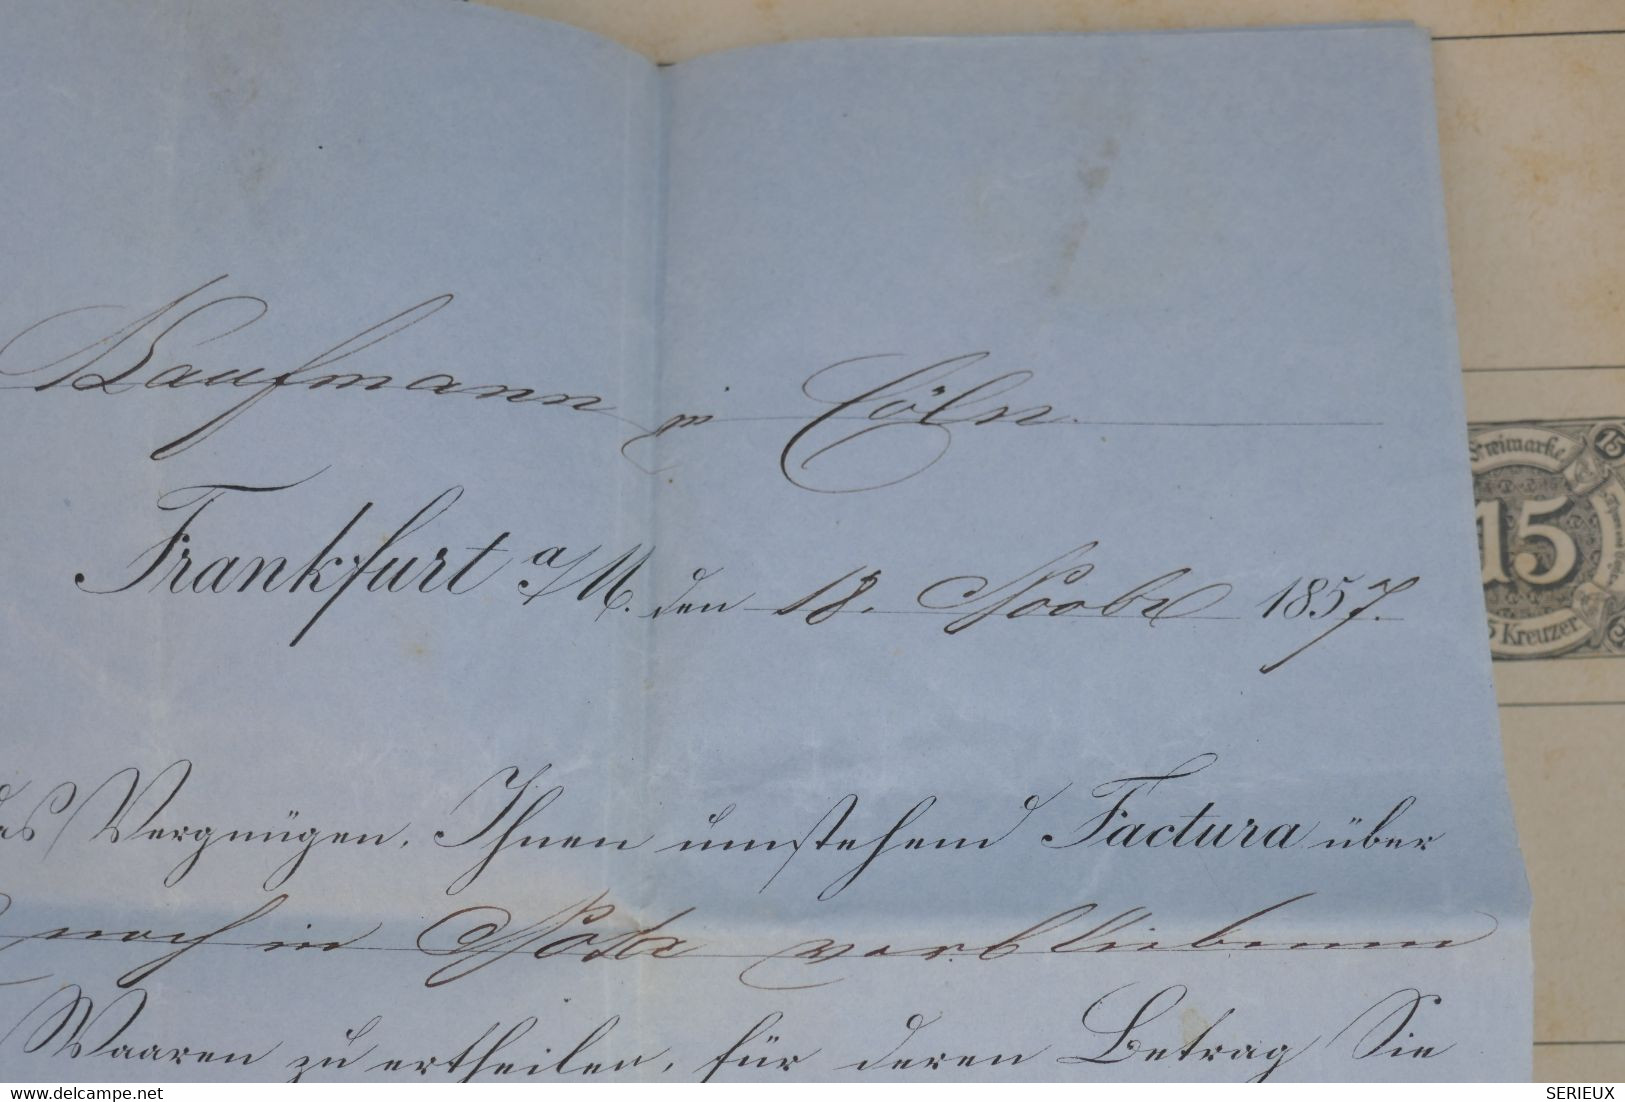 Kaufmann in Cöln
Frankfurt a/M. den 18. Novbr 1857.
das Vergnügen, Ihnen umstehend Factura über
noch in Nota verbliebenen
Waaren zu ertheilen, für deren Betrag Sie
Freimarke
15
15
5 Kreuzer
delcampe.net
SERIEUX